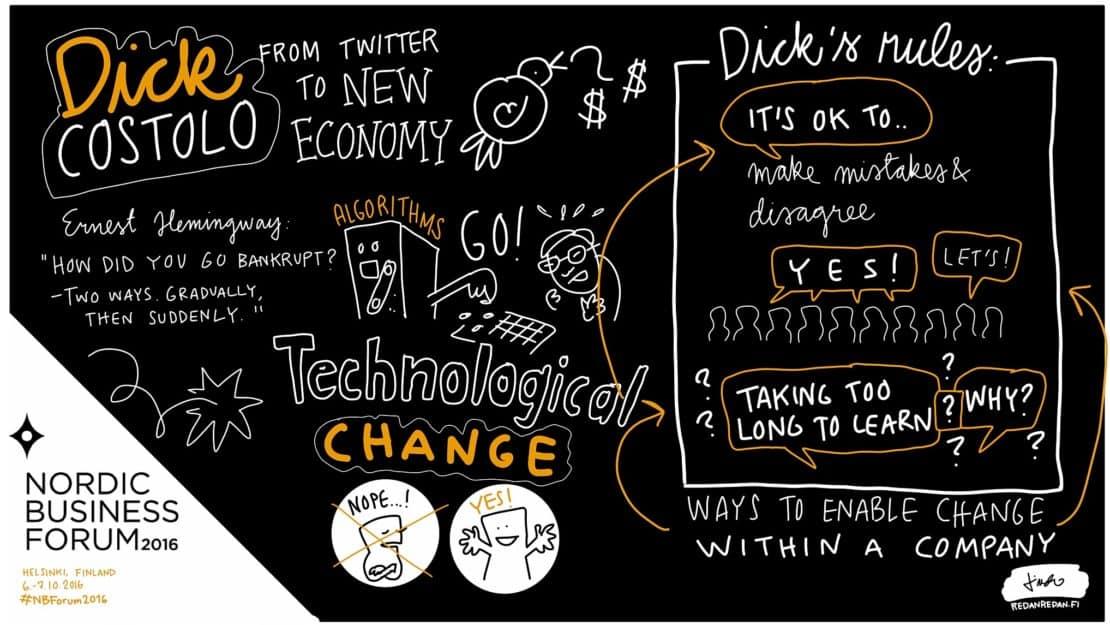 Dick
COSTOLO
FROM TWITTER
TO NEW
ECONOMY
$
$
Ernest Hemingway:
"HOW DID YOU GO BANKRUPT?
-TWO WAYS. GRADUALLY,
THEN SUDDENLY."
ALGORITHMS
GO!
Technological
CHANGE
NOPE...!
YES!
NORDIC
BUSINESS
FORUM2016
HELSINKI, FINLAND
6.-7.10.2016
#NBForum2016
Dick's rules:
IT'S OK TO..
make mistakes &
disagree
YES!
LET'S!
?
?
?
TAKING TOO
LONG TO LEARN
?
WHY?
?
?
WAYS TO ENABLE CHANGE
WITHIN A COMPANY
REDANREDAN.FI